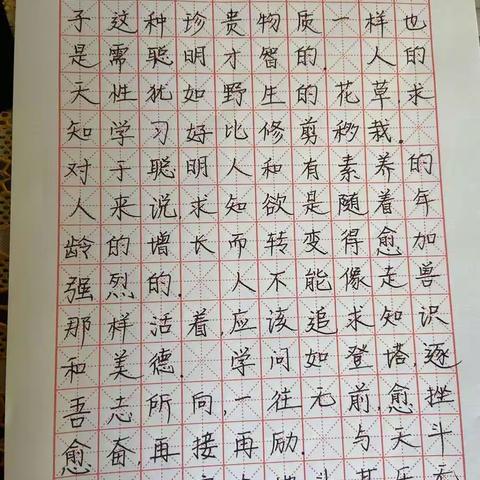 子这种珍贵物质一样也
是需聪明才智的. 人的
天性犹如野生的花草,求
知学习好比修剪移栽.
对于聪明人和有素养的
人来说求知欲是随着年
龄的增长而转变得愈加
强烈的. 人不能像走兽
那样活着,应该追求知识
和美德. 学问如登塔,逐
吾志所向,一往无前,愈挫
愈奋,再接再励. 与天斗
其乐无